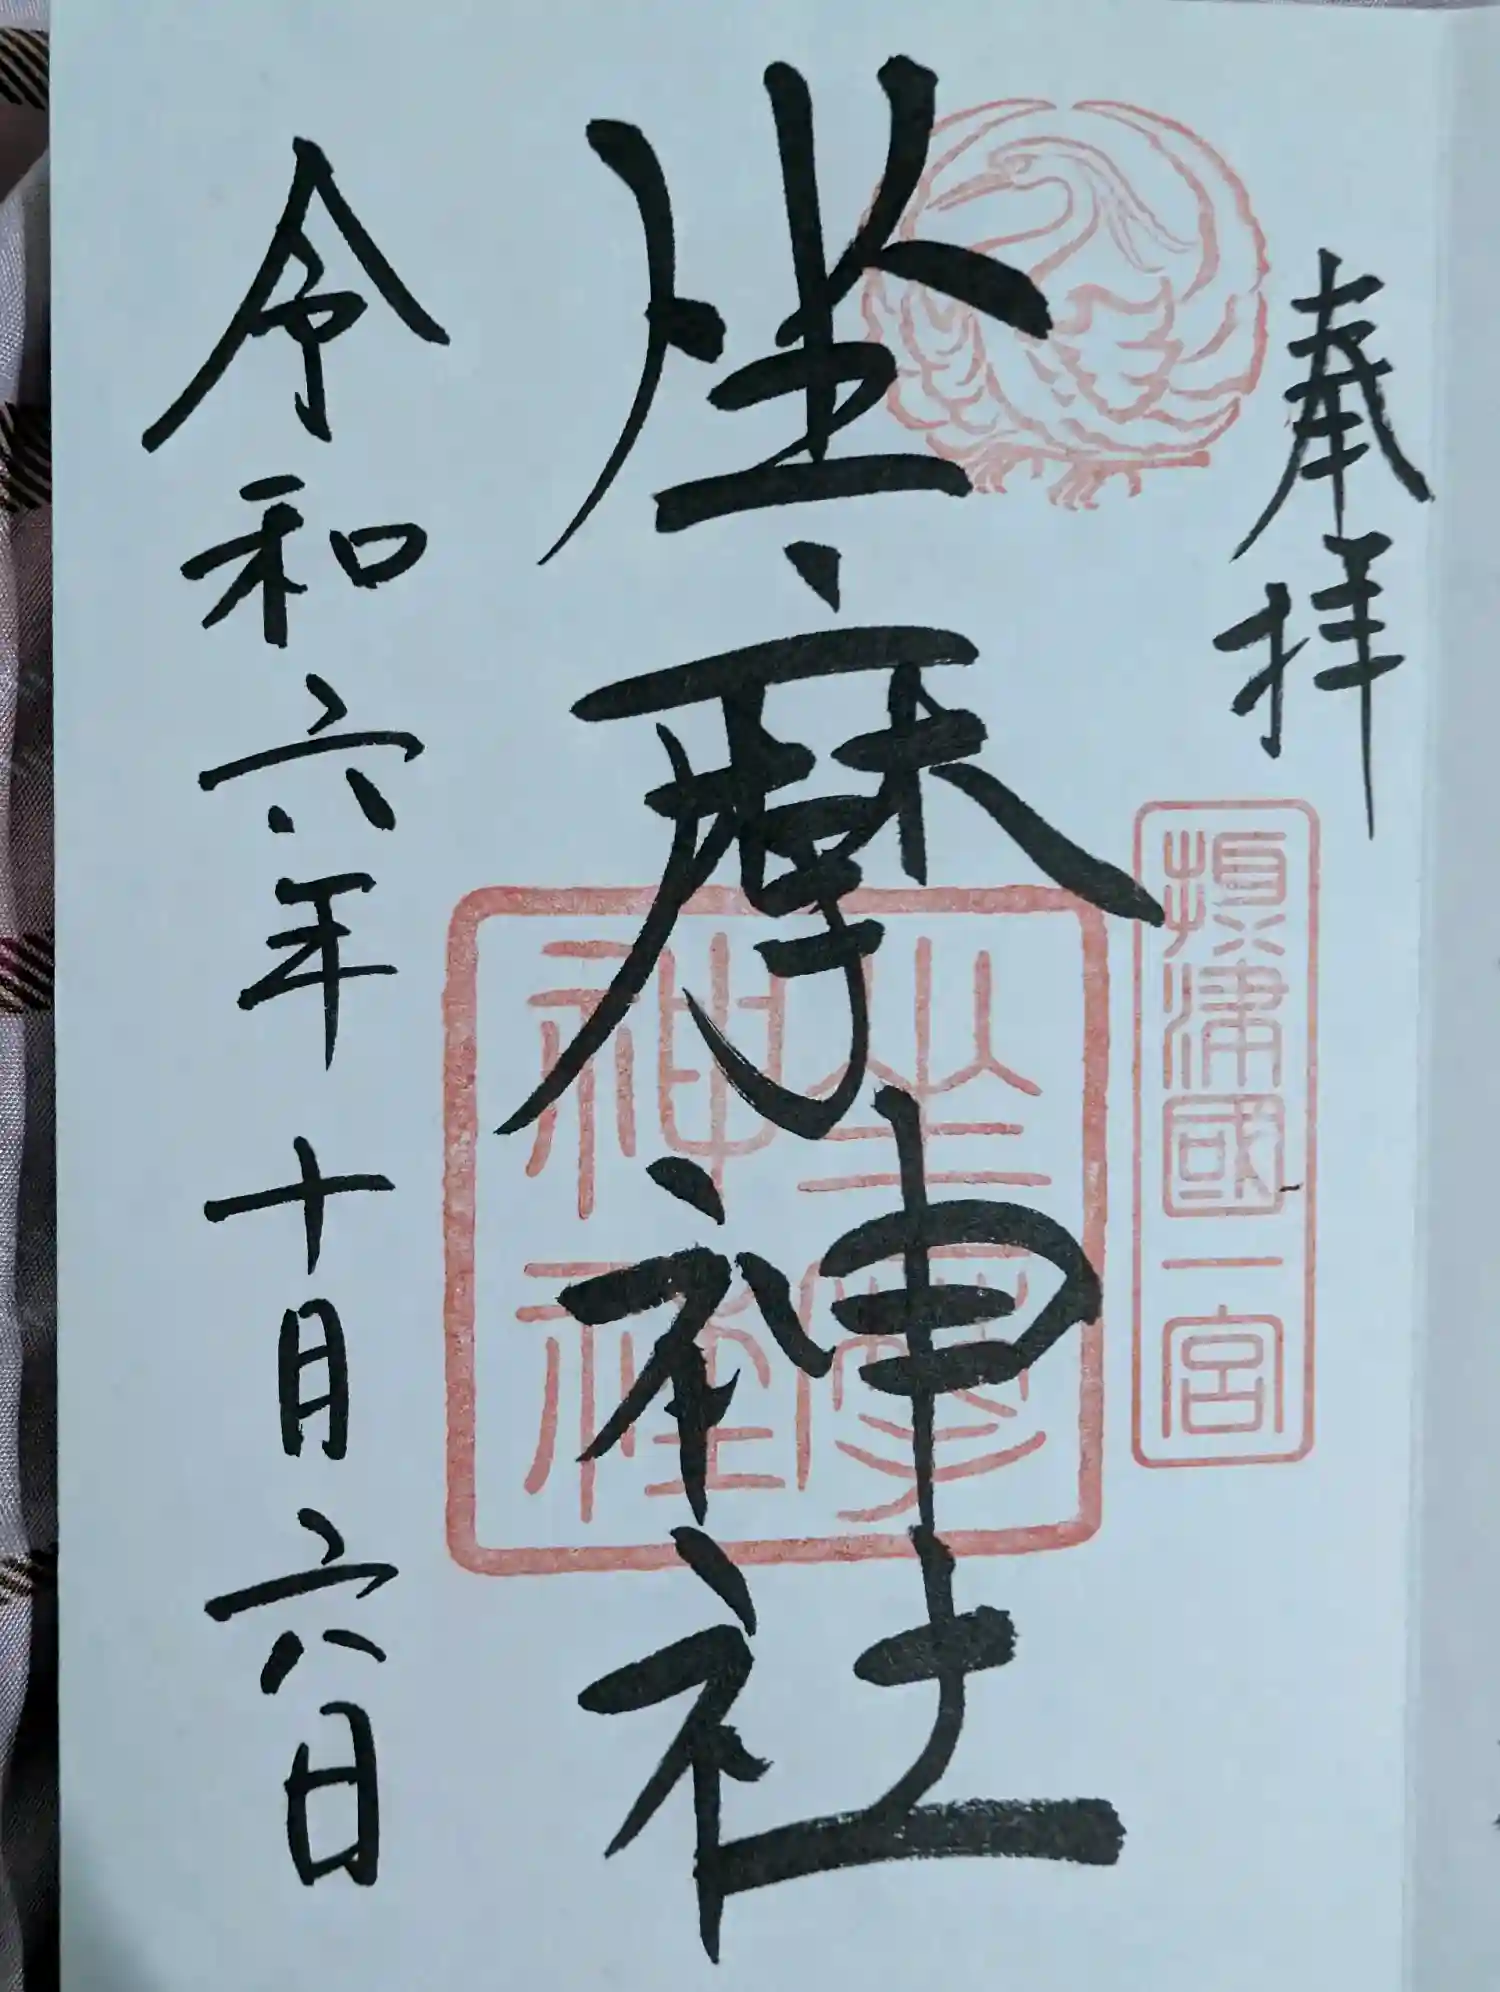 奉拝
摂津國一宮
坐摩神社
坐摩神社
令和六年十月六日